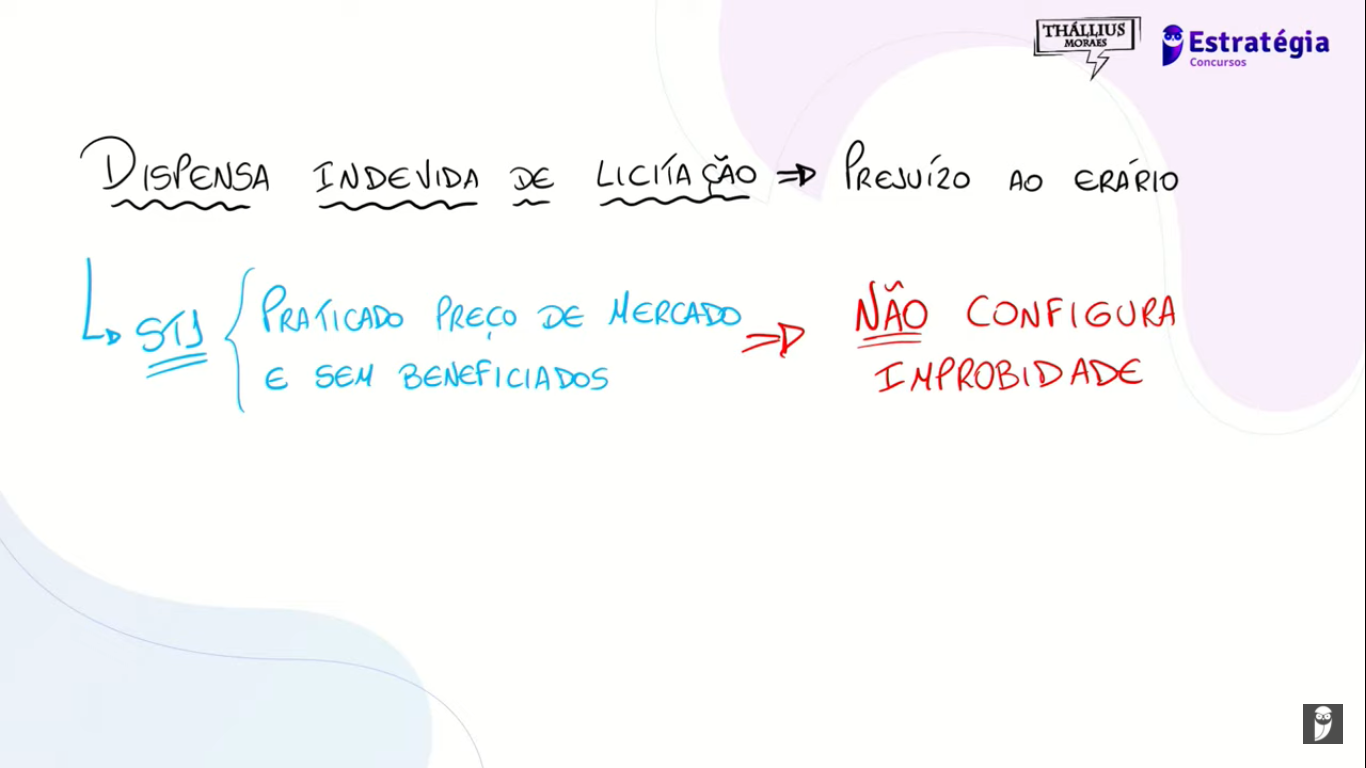 THÁLLIUS
MORAES
Estratégia
Concursos
DISPENSA INDEVIDA DE LICITAÇÃO ⇒ PREJUÍZO AO ERÁRIO
↳ STJ { PRATICADO PREÇO DE MERCADO ⇒ NÃO CONFIGURA
E SEM BENEFICIADOS IMPROBIDADE